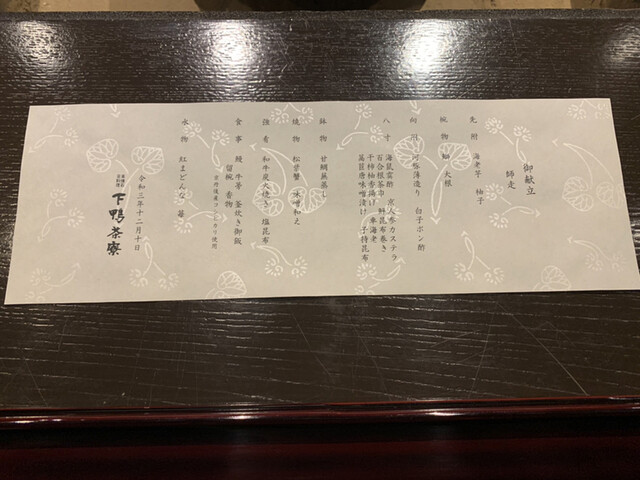 御献立
師走
先附 海老芋 柚子
椀物 蟹 大根
向附 河豚薄造り 白子ポン酢
八寸 海鼠霙酢 京人参カステラ
百合根茶巾 鮭昆布巻き
干柿柚香揚げ 車海老
萵苣唐味噌漬け 子持昆布
鉢物 甘鯛蕪蒸し
焼物 松葉蟹 味噌和え
強肴 和牛炭火焼き 塩昆布
食事 鰻 牛蒡 釜炊き御飯
留椀 香物
京丹後産コシヒカリ使用
水物 紅まどんな 苺
令和三年十二月十日
下鴨茶寮